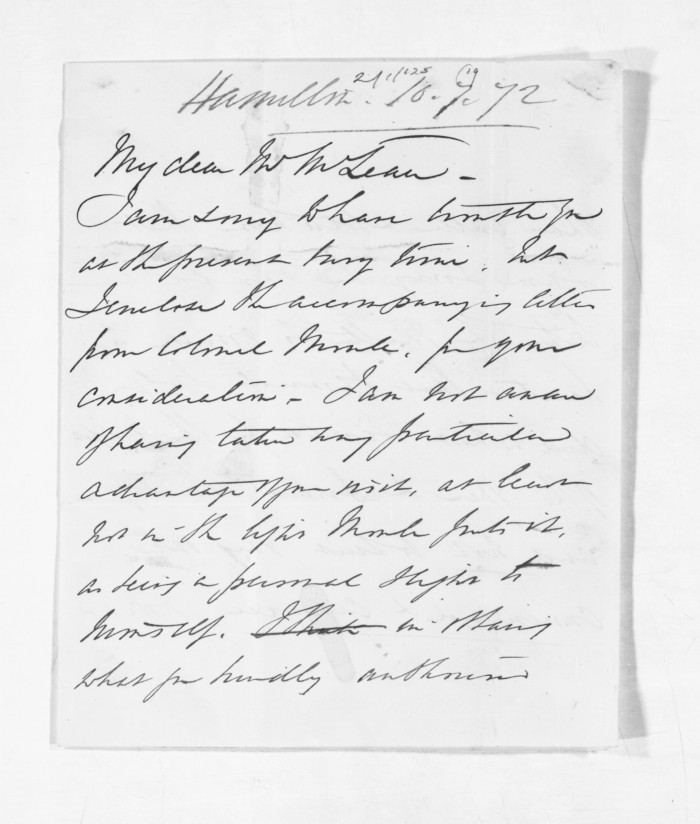 Hamilton. 10. 7. 72
My dear Mr McLean -
I am sorry to have trouble you
at the present busy time, but
I enclose the accompanying letter
from Colonel Moule, for your
consideration - I am not aware
of having taken any particular
advantage of your visit, at least
not in the light Moule puts it,
as being a personal slight to
himself. I think in
what you kindly authorised